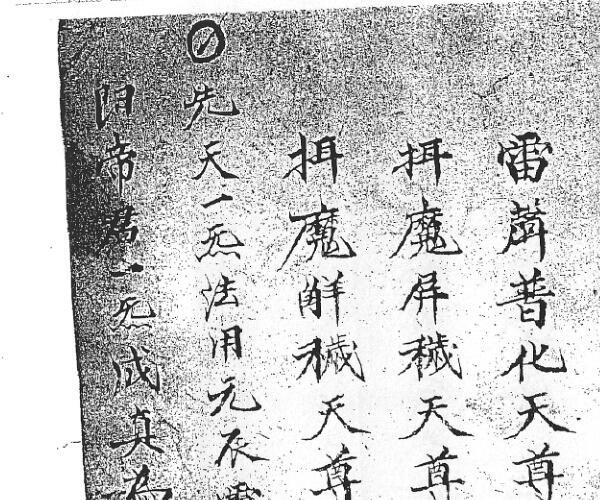 雷聲普化天尊
捛魔屏穢天尊
捛魔解穢天尊
先天一炁法用元辰雷
阳帝君一炁成真為